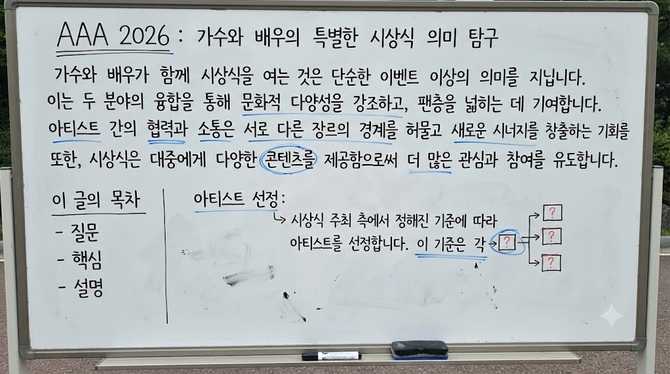 AAA 2026 : 가수와 배우의 특별한 시상식 의미 탐구
가수와 배우가 함께 시상식을 여는 것은 단순한 이벤트 이상의 의미를 지닙니다.
이는 두 분야의 융합을 통해 문화적 다양성을 강조하고, 팬층을 넓히는 데 기여합니다.
아티스트 간의 협력과 소통은 서로 다른 장르의 경계를 허물고 새로운 시너지를 창출하는 기회를
또한, 시상식은 대중에게 다양한 콘텐츠를 제공함으로써 더 많은 관심과 참여를 유도합니다.
이 글의 목차
- 질문
- 핵심
- 설명
아티스트 선정:
시상식 주최 측에서 정해진 기준에 따라
아티스트를 선정합니다. 이 기준은 각 ?
?
?
?